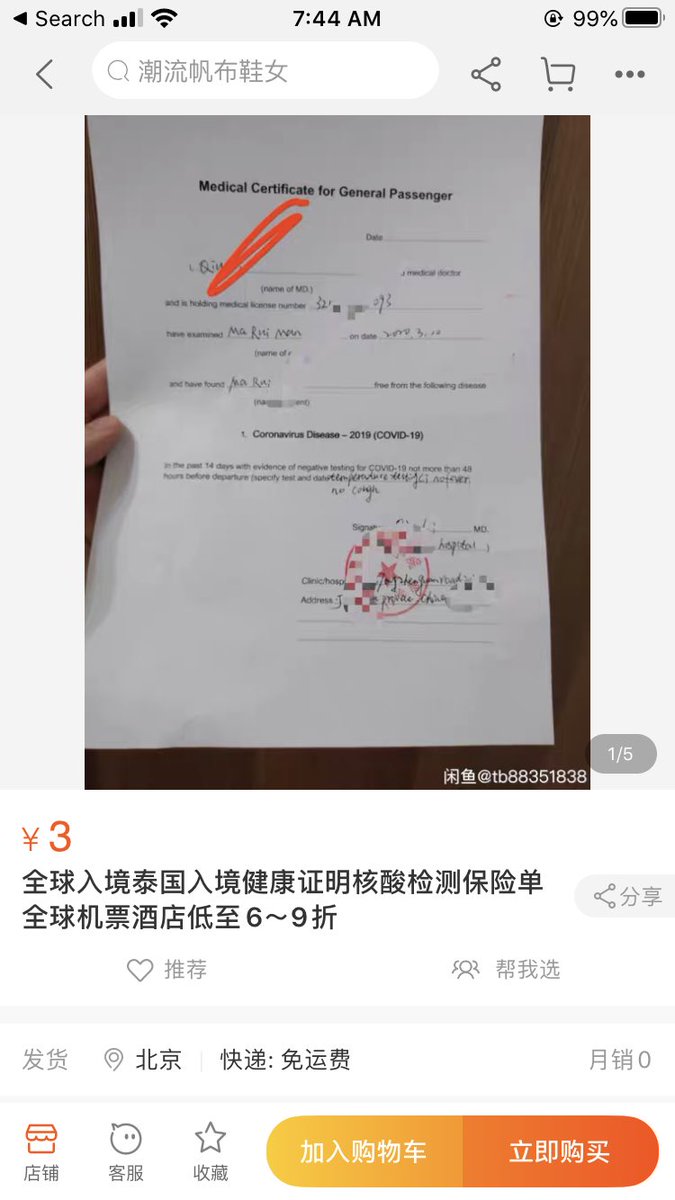 Search
7:44 AM
99%
潮流帆布鞋女
Medical Certificate for General Passenger
Date
I, Qiu
a medical doctor
(name of MD.)
and is holding medical license number 321 093
have examined Ma Rui Man on date 2020.3.10
(name of
and have found Ma Rui free from the following disease
1. Coronavirus Disease – 2019 (COVID-19)
In the past 14 days with evidence of negative testing for COVID-19 not more than 48
hours before departure (specify test and date temperature testing; no fever
no cough
MD.
hospital)
Clinic/hosp
Address
China
1/5
闲鱼@tb88351838
¥3
全球入境泰国入境健康证明核酸检测保险单
全球机票酒店低至6～9折
分享
推荐
帮我选
发货
北京
快递: 免运费
月销0
店铺
客服
收藏
加入购物车
立即购买